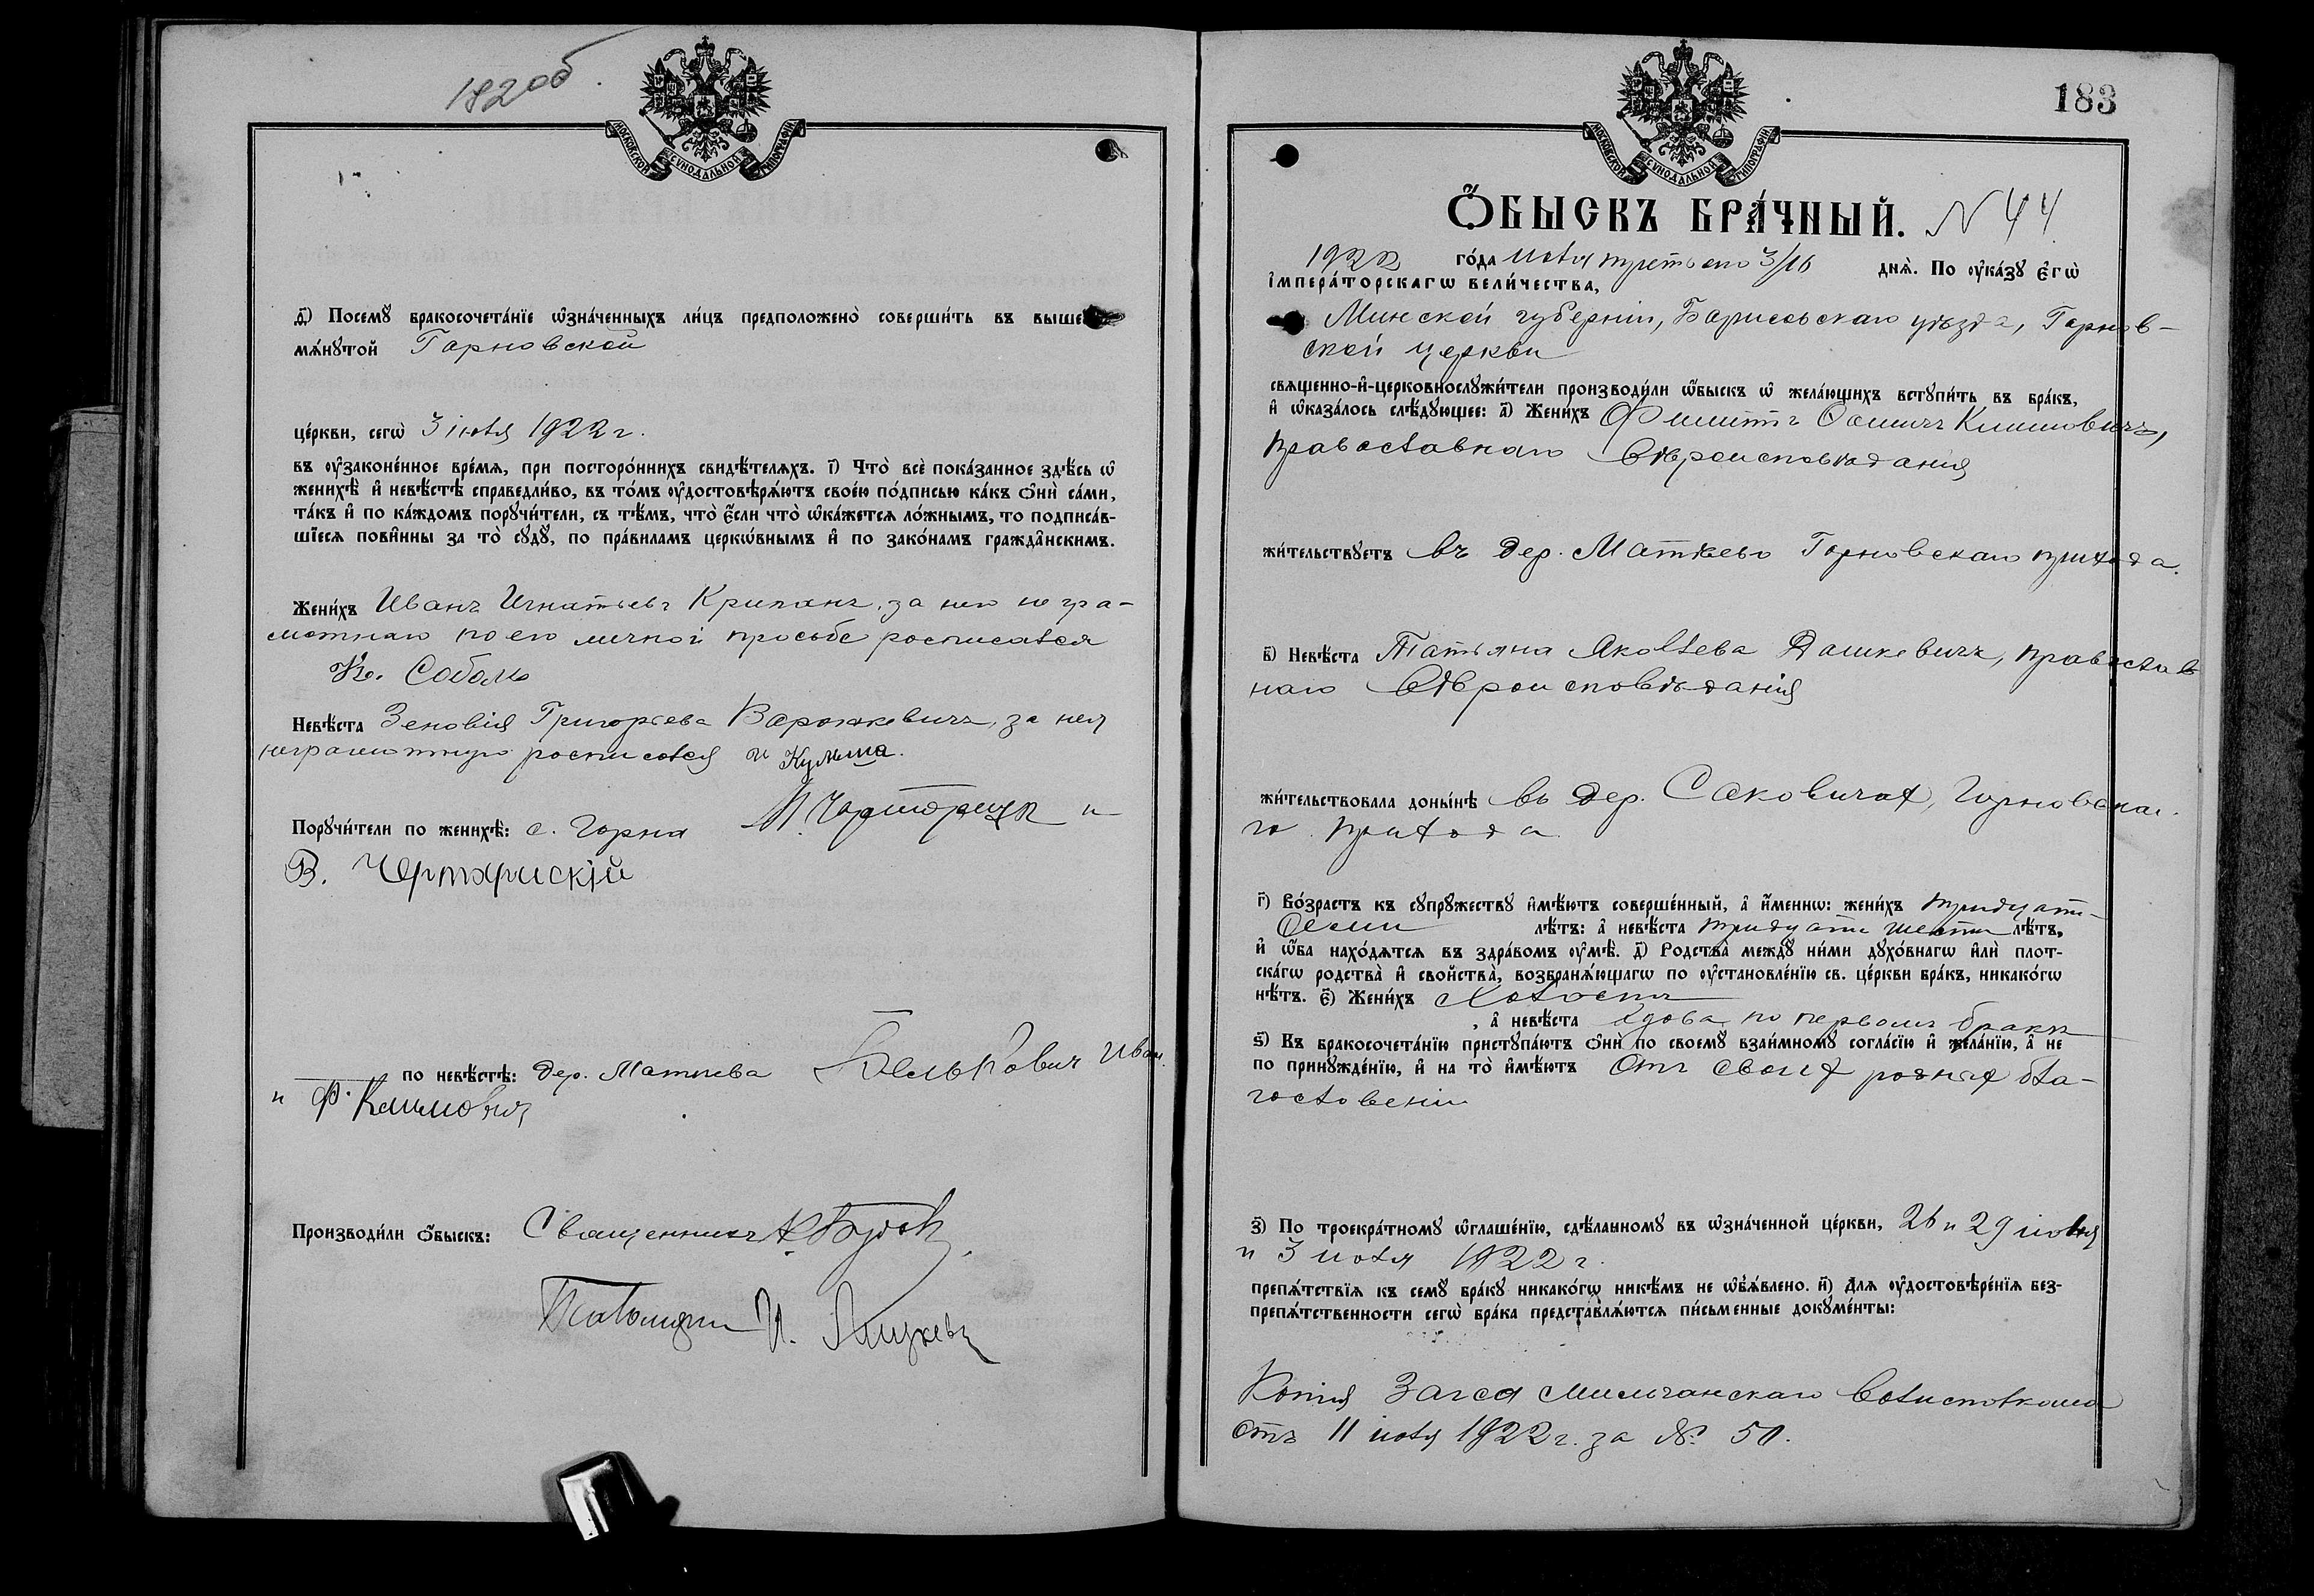 182об.
МОСКОВСКОЙ СѴНОДАЛЬНОЙ ТИПОГРАФІИ
д҃) Посемꙋ̀ бракосочета́нїе ѡ҆зна́ченныхъ ли́цъ предположено̀ соверши́ть въ выше
мѧ́нꙋтой Горновской
це́ркви, сегѡ̀ 3 іюля 1922 г.
въ ᲂу҆законе́нное вре́мѧ, при посторо́ннихъ свидѣ́телѧхъ. і҃) Что̀ всѐ пока́занное здѣ́сь ѡ҆
женихѣ̀ и҆ невѣ́стѣ справедли́во, въ то́мъ ᲂу҆достовѣрѧ́ютъ свое́ю по́дписью ка́къ ѻ҆нѝ са́ми,
та́къ и҆ по ка́ждомъ порꙋчи́тели, съ тѣ́мъ, что̀ є҆́сли что̀ ѡ҆ка́жетсѧ ло́жнымъ, то подписа́в-
шїесѧ пови́нны за то̀ сꙋдꙋ̀, по пра́виламъ церкѡ́внымъ и҆ по зако́намъ гражда́нскимъ.
Жени́хъ Иванъ Игнатьевъ Крипанъ, за него негра-
мотнаго по его личной просьбе росписался
К. Соболь
Невѣ́ста Зеновія Григорьева Варожкевичъ, за нея
неграмотную росписался И Кульша.
Порꙋчи́тели по женихѣ̀: с. Горна и
В. Чарторискій
по невѣ́стѣ: дер. Маткева Белькович Иван
и Ф. Климович
Производи́ли ѻ҆́быскъ: Священникъ
Псаломщикъ И.
183
МОСКОВСКОЙ СѴНОДАЛЬНОЙ ТИПОГРАФІИ
Ѻ҆́БЫСКЪ БРА́ЧНЫЙ. N 44
1922 го́да июля третьяго 3/16 днѧ̀. По ᲂу҆ка́зꙋ Є҆гѡ̀
І҆мпера́торскагѡ вели́чества,
Минской губерніи, Борисовскаго уѣзда, Горнов-
ской церкви
свѧщенно-и҆-церковнослꙋжи́тели производи́ли ѡ҆́быскъ ѡ҆ жела́ющихъ вступи́ть въ бра́къ,
и҆ ѡ҆каза́лось слѣ́дꙋющее: а҃) Жени́хъ Филиппъ Фоминъ Климовичъ,
православнаго вѣроисповѣданія
жи́тельствꙋетъ въ дер. Маткево Горновскаго прихода.
в҃) Невѣ́ста Татьяна Яковлева Дашкевичъ, православ
наго вѣроисповѣданія
жи́тельствовала доны́нѣ въ дер. Саковичах, Горновска-
го прихода
г҃) Во́зрастъ къ сꙋпрꙋ́жествꙋ и҆мѣ́ютъ соверше́нный, а҆ и҆́менно: жени́хъ тридцати-
семи лѣ́тъ: а҆ невѣ́ста тридцати шести лѣ́тъ,
и҆ ѡ҆́ба нахо́дѧтсѧ въ здра́вомъ ᲂу҆мѣ̀. д҃) Родства̀ междꙋ̀ ни́ми дꙋхо́внагѡ и҆лѝ плот-
ска́гѡ родства̀ и҆ свойства̀, возбранѧ́ющагѡ по ᲂу҆становле́нїю св. це́ркви бра́къ, никако́гѡ
нѣ́тъ. є҃) Жени́хъ холостъ
, а҆ невѣ́ста вдова по первомъ бракѣ
ѕ҃) Къ бракосочета́нїю пристꙋпа́ютъ ѻ҆нѝ по своемꙋ̀ взаи́мномꙋ согла́сїю и҆ жела́нїю, а҆ не
по принꙋжде́нїю, и҆ на то̀ и҆мѣ́ютъ отъ своих родных бла-
гословеніи
з҃) По троекра́тномꙋ ѡ҆глаше́нїю, сдѣ́ланномꙋ въ ѡ҆зна́ченной це́ркви, 26 и 29 іюня
и 3 июля 1922 г.
препѧ́тствїѧ къ семꙋ̀ бра́кꙋ никако́гѡ никѣ́мъ не ѡ҆б̾ѧ́влено. и҃) Длѧ ᲂу҆достовѣре́нїѧ без-
препѧ́тственности сегѡ̀ бра́ка представлѧ́ютсѧ пи́сьменные докꙋме́нты:
Копія Загса Мильчанскаго Волисполкома
отъ 11 июля 1922 г. за №. 50.